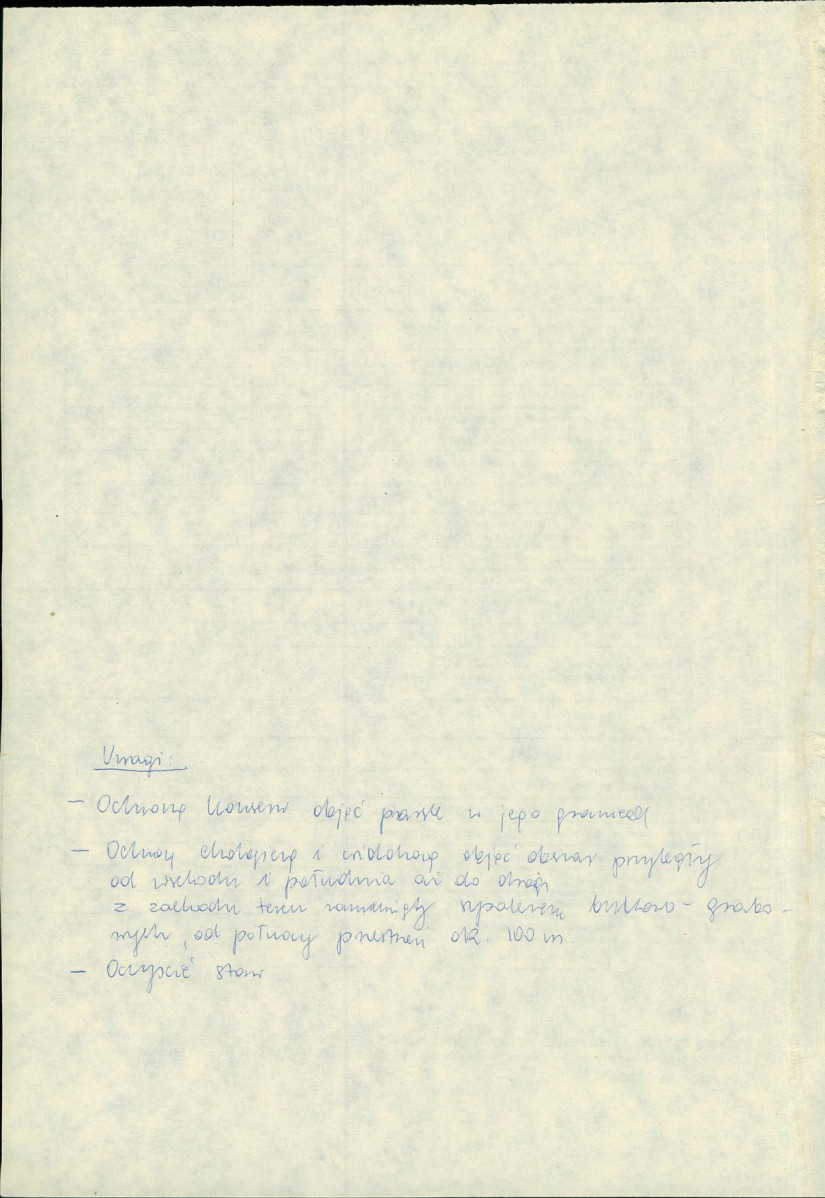 Uwagi:
— Ochroną konserw. objąć park w jego granicach
— Ochroną ekologiczną i widokową objąć obszar przyległy
od wschodu i południa aż do drogi
z zachodu teren zamknięty szpalerem bukowo - grabo-
wych, od północy przestrzeń ok. 100 m.
— Oczyścić staw